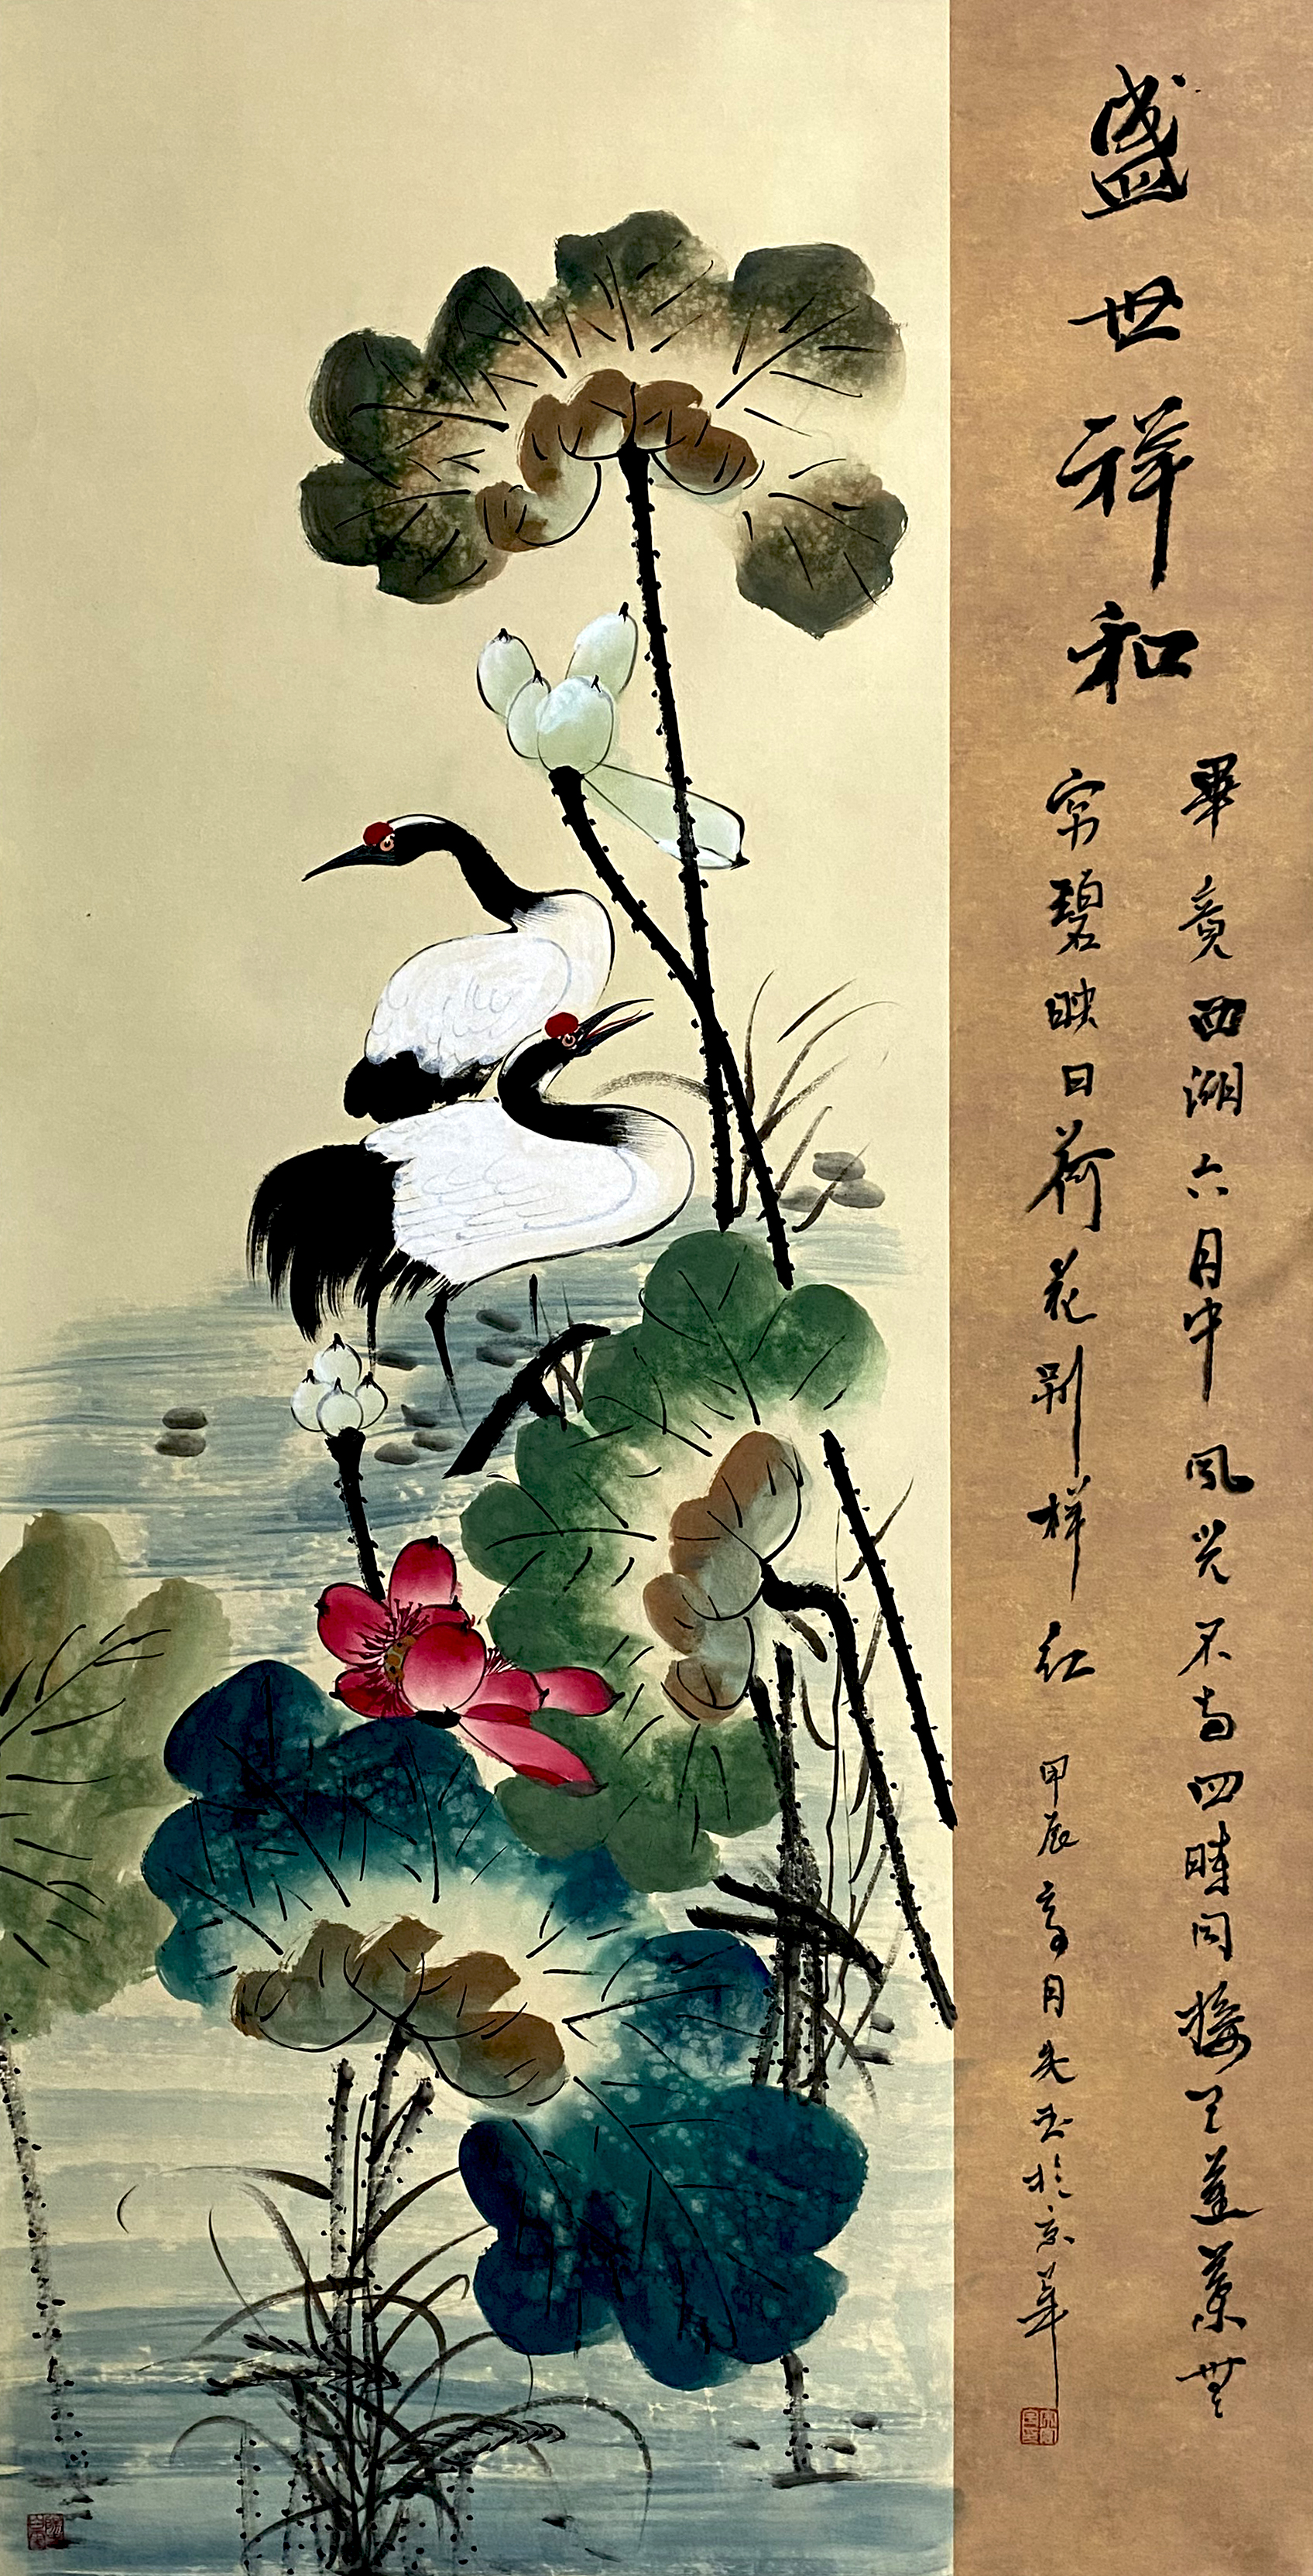 盛世祥和
畢竟西湖六月中風光不与四時同接天蓮葉無
穷碧映日荷花别样红
甲辰 月 於京華